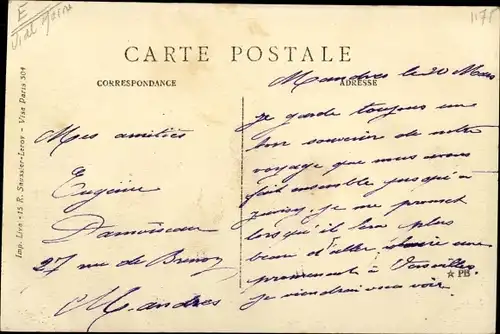 E
Val Marne
1178
CARTE POSTALE
CORRESPONDANCE
ADRESSE
Imp. Live - 15 R. Saussier-Leroy - Visé Paris 304
Mes amitiés
Eugénie
Damoiseau
27 rue de Brunoy
Mandres
Mandres le 20 Mars
je garde toujours un
bon souvenir de notre
voyage que nous avons
fait ensemble jusqu'à
juvisy je me promet
lorsqu'il fera plus
beau d'aller une
promenade à Versailles
je viendrai vous voir.
★ PB